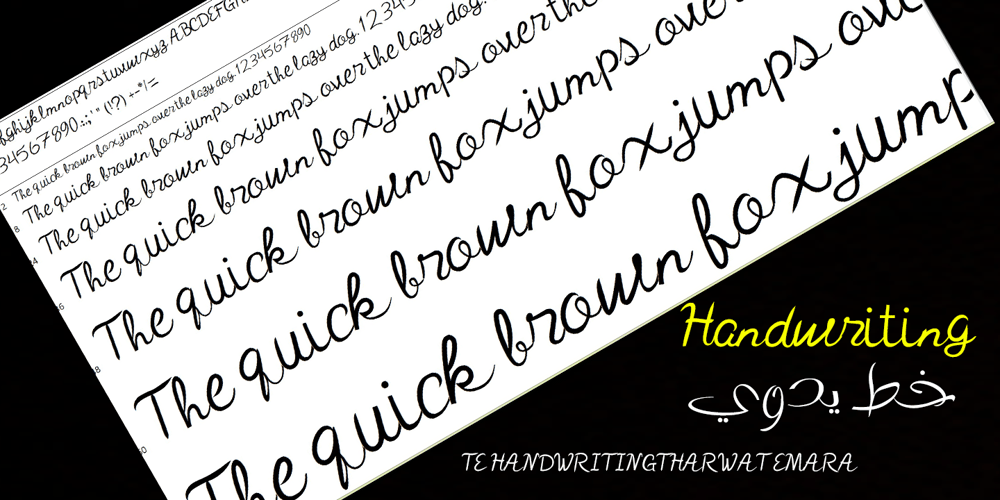 fghijklmnopqrstuvwxyz ABCDEFG
34567890.:,;'" (!?) +-*/=
2 The quick brown fox jumps over the lazy dog. 1234567890
8 The quick brown fox jumps over the lazy dog. 12345
4 The quick brown fox jumps over the lazy dog.
6 The quick brown fox jumps over
8 The quick brown fox jumps
0 The quick brown fox jumps
The quick brown fox jump
Handwriting
خط يدوي
TE HANDWRITING THARWAT EMARA